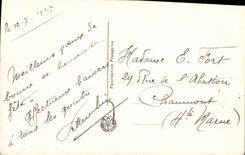 le 12-7-1933
Meilleurs vœux de
bonne et heureuse
fête
Affectueux baisers
à tous les quatre
Madame E. Fort
29 Rue de l'Abattoir
Chaumont
(Hte Marne)